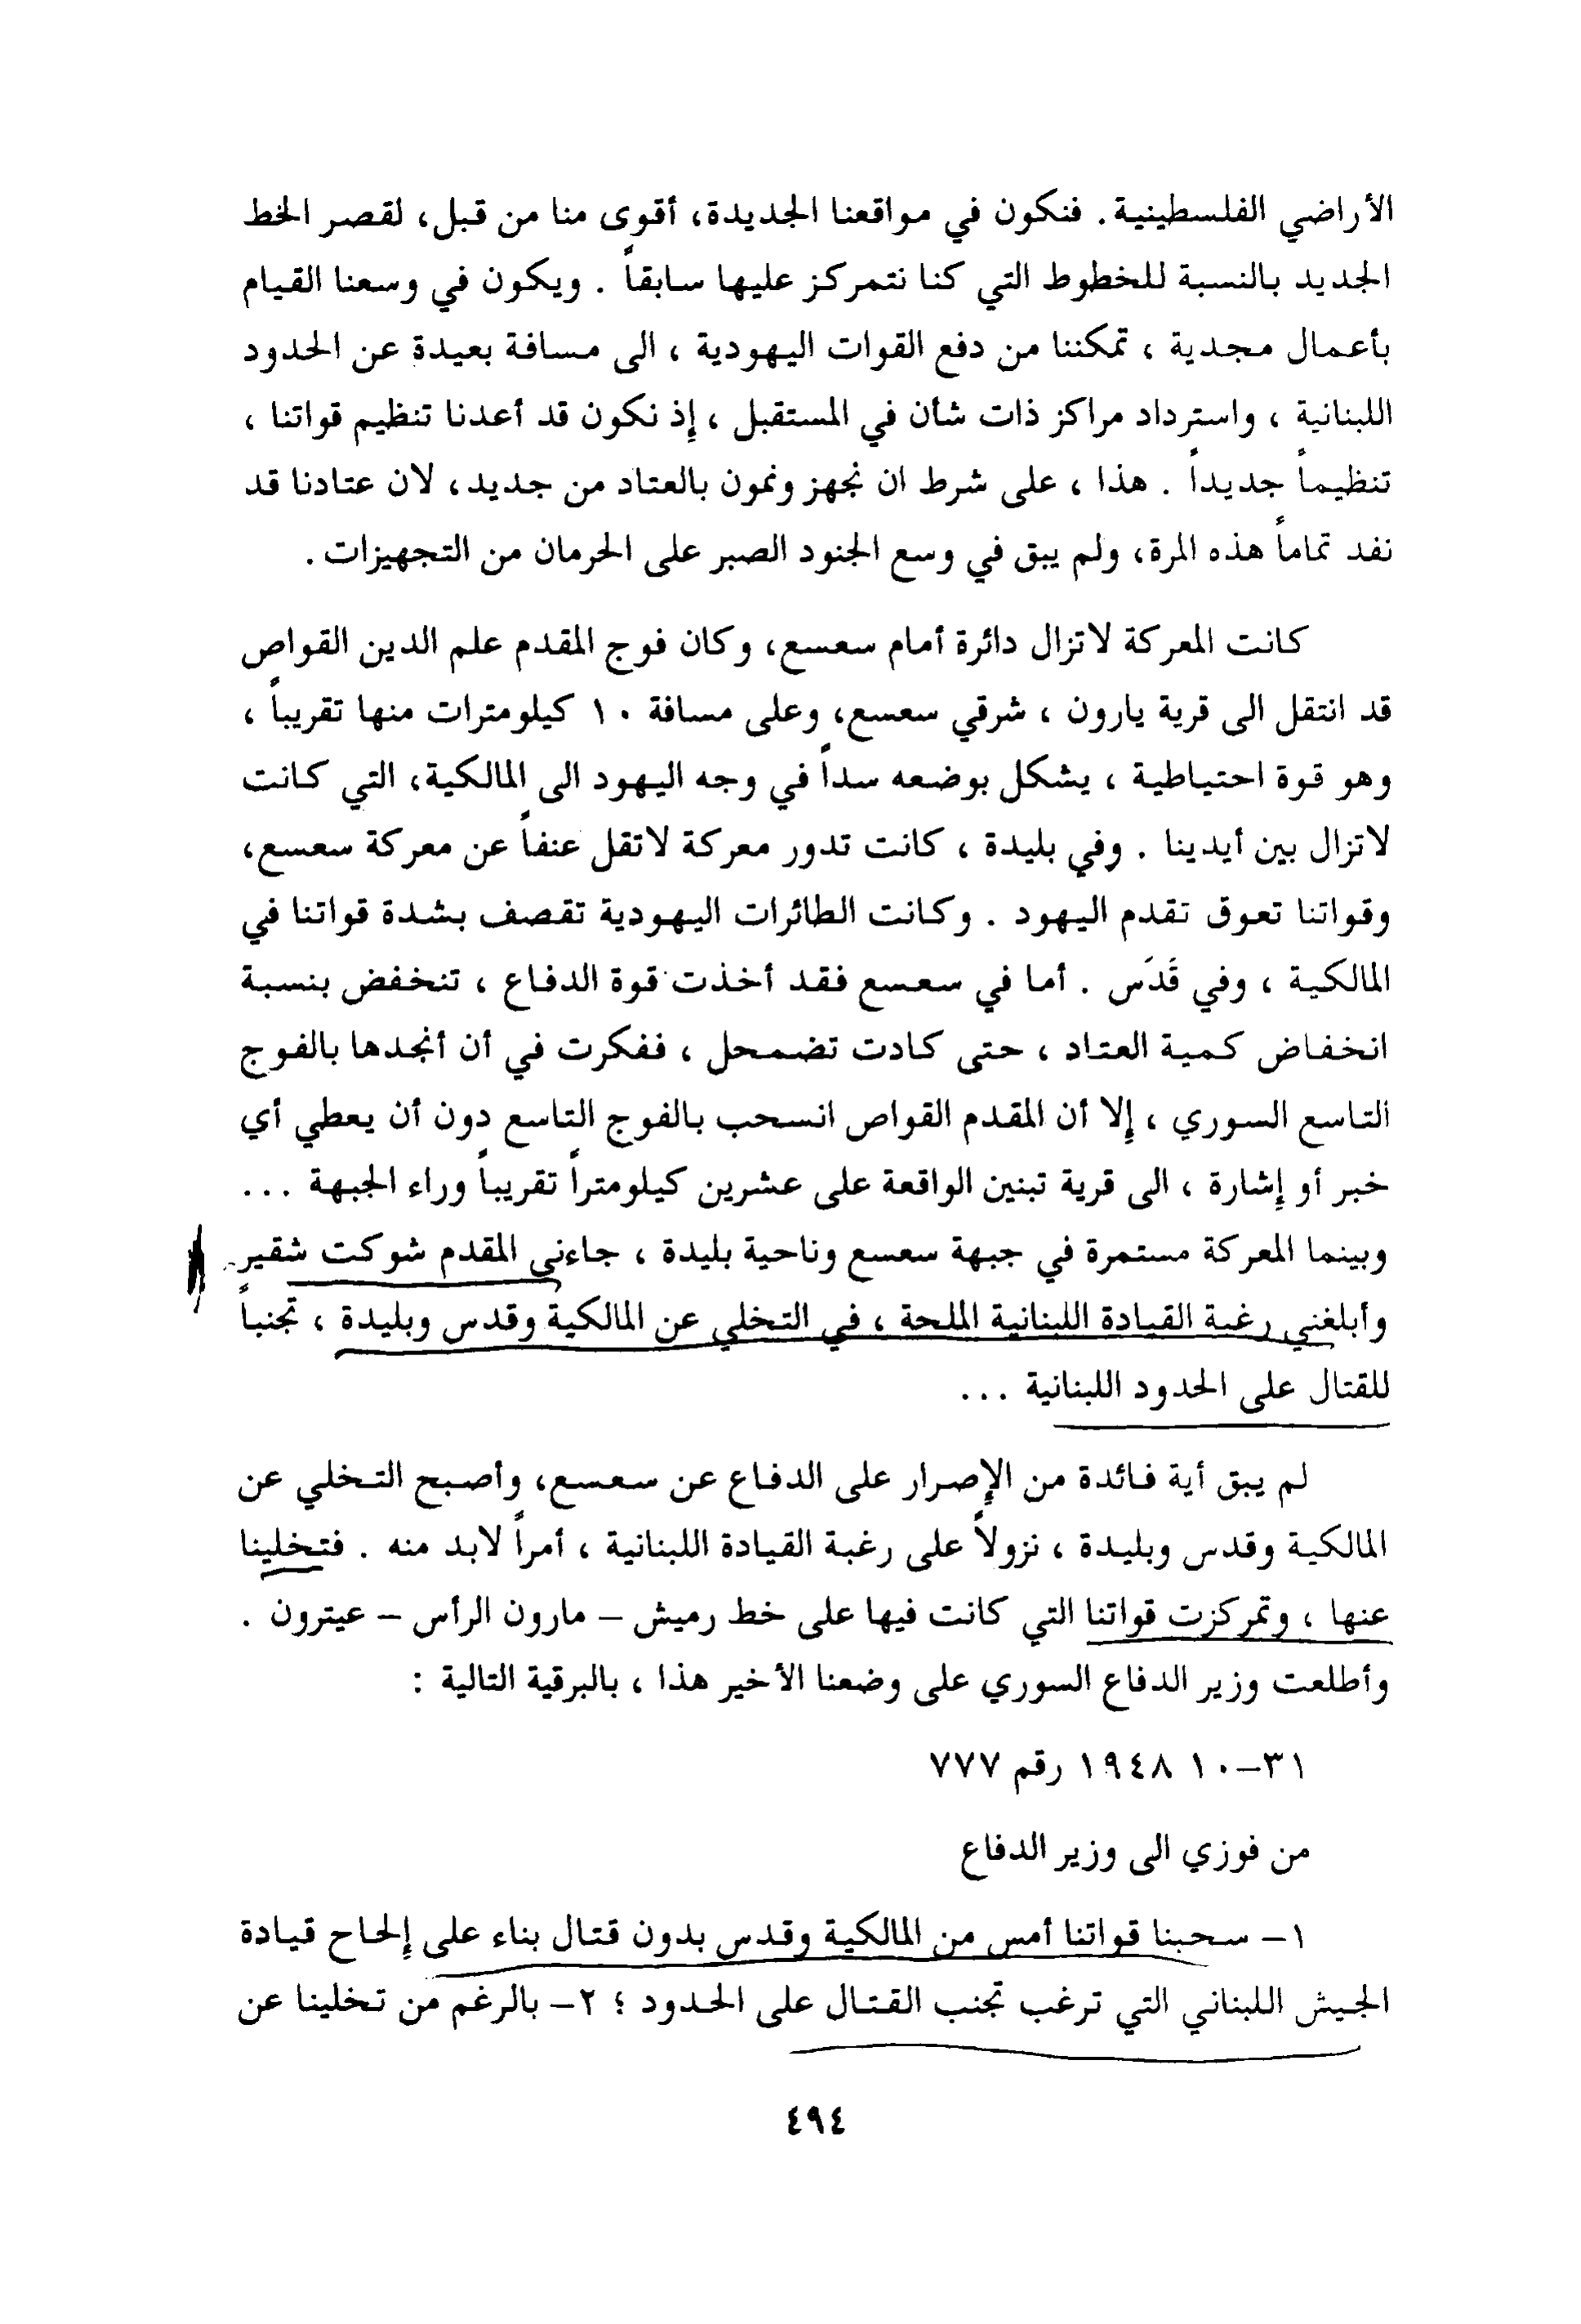 الأراضي الفلسطينية. فنكون في مواقعنا الجديدة، أقوى منا من قبل، لقصر الخط
الجديد بالنسبة للخطوط التي كنا نتمركز عليها سابقاً . ويكون في وسعنا القيام
بأعمال مجدية ، تمكننا من دفع القوات اليهودية ، الى مسافة بعيدة عن الحدود
اللبنانية ، واسترداد مراكز ذات شأن في المستقبل ، إذ نكون قد أعدنا تنظيم قواتنا ،
تنظيماً جديداً . هذا ، على شرط ان نجهز ونمون بالعتاد من جديد، لان عتادنا قد
نفد تماماً هذه المرة، ولم يبق في وسع الجنود الصبر على الحرمان من التجهيزات .
كانت المعركة لاتزال دائرة أمام سعسع، وكان فوج المقدم علم الدين القواص
قد انتقل الى قرية يارون ، شرقي سعسع، وعلى مسافة ١٠ كيلومترات منها تقريباً ،
وهو قوة احتياطية ، يشكل بوضعه سداً في وجه اليهود الى المالكية، التي كانت
لاتزال بين أيدينا . وفي بليدة ، كانت تدور معركة لاتقل عنفاً عن معركة سعسع،
وقواتنا تعوق تقدم اليهود . وكانت الطائرات اليهودية تقصف بشدة قواتنا في
المالكية ، وفي قَدَس . أما في سعسع فقد أخذت قوة الدفاع ، تنخفض بنسبة
انخفاض كمية العتاد ، حتى كادت تضمحل ، ففكرت في أن أنجدها بالفوج
التاسع السوري ، إلا أن المقدم القواص انسحب بالفوج التاسع دون أن يعطي أي
خبر أو إشارة ، الى قرية تبنين الواقعة على عشرين كيلومتراً تقريباً وراء الجبهة ...
وبينما المعركة مستمرة في جبهة سعسع وناحية بليدة ، جاءني المقدم شوكت شقير
وأبلغني رغبة القيادة اللبنانية الملحة ، في التخلي عن المالكية وقدس وبليدة ، تجنباً
للقتال على الحدود اللبنانية ...
لم يبق أية فائدة من الإصرار على الدفاع عن سعسع، وأصبح التخلي عن
المالكية وقدس وبليدة ، نزولاً على رغبة القيادة اللبنانية ، أمراً لابد منه . فتخلينا
عنها ، وتمركزت قواتنا التي كانت فيها على خط رميش – مارون الرأس – عيترون .
وأطلعت وزير الدفاع السوري على وضعنا الأخير هذا ، بالبرقية التالية :
٣١–١٠ ١٩٤٨ رقم ٧٧٧
من فوزي الى وزير الدفاع
١– سحبنا قواتنا أمس من المالكية وقدس بدون قتال بناء على إلحاح قيادة
الجيش اللبناني التي ترغب تجنب القتال على الحدود ؛ ٢– بالرغم من تخلينا عن
٤٩٤